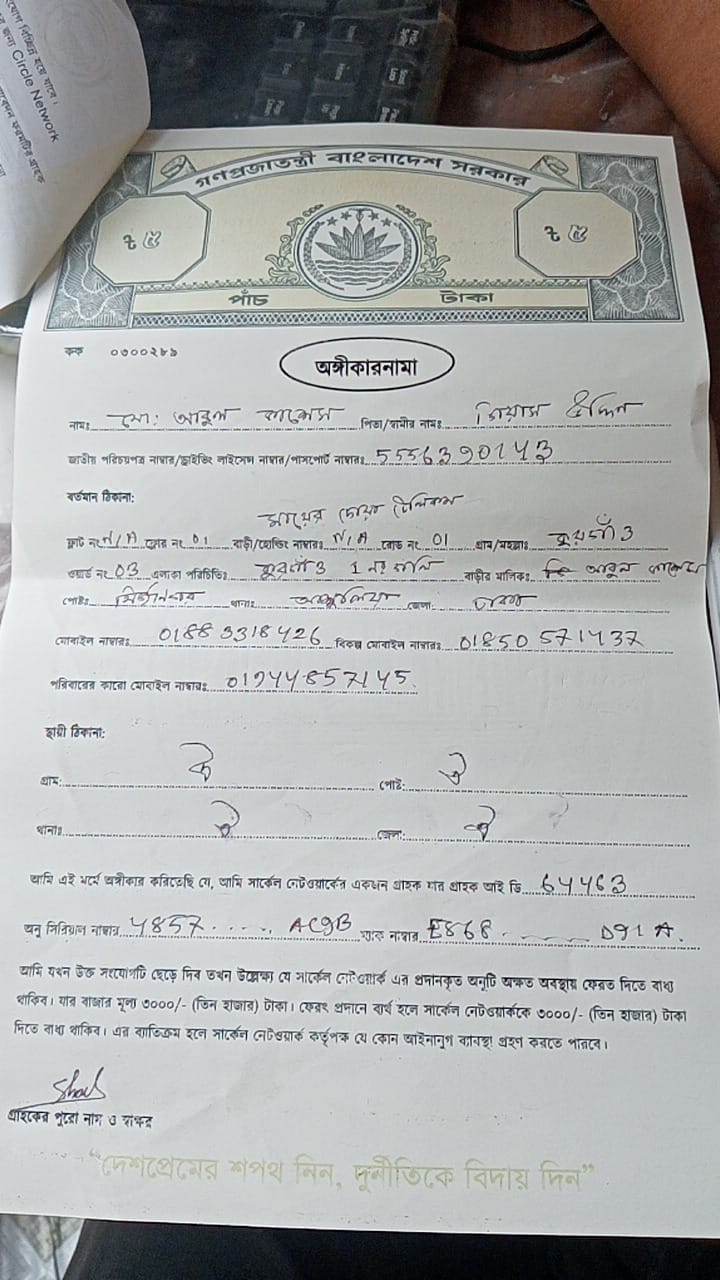 যোগ বিচ্ছিন্ন হয়ে যাবে।
র জন্য Circle Network
গণপ্রজাতন্ত্রী বাংলাদেশ সরকার
৳ ৫
৳ ৫
পাঁচ টাকা
কক ০৩০০২৮৯
অঙ্গীকারনামা
নামঃ মো: আবুল কাশেম পিতা/স্বামীর নামঃ গিয়াস উদ্দিন
জাতীয় পরিচয়পত্র নাম্বার/ড্রাইভিং লাইসেন্স নাম্বার/পাসপোর্ট নাম্বারঃ 5556390143
বর্তমান ঠিকানা:
মায়ের দোয়া টেলিকম
ফ্লাট নং N/A ফ্লোর নং 01 বাড়ী/হোল্ডিং নাম্বারঃ N/A রোড নং 01 গ্রাম/মহল্লাঃ
ওয়ার্ড নং 03 এলাকা পরিচিতিঃ 1 নং গলি বাড়ীর মালিকঃ আবুল কাশেম
পোষ্টঃ থানাঃ আশুলিয়া জেলা ঢাকা
মোবাইল নাম্বারঃ 01883318426 বিকল্প মোবাইল নাম্বারঃ 01850571437
পরিবারের কারো মোবাইল নাম্বারঃ 01944857145
স্থায়ী ঠিকানা:
গ্রাম: ঐ পোষ্ট: ঐ
থানাঃ ঐ জেলা: ঐ
আমি এই মর্মে অঙ্গীকার করিতেছি যে, আমি সার্কেল নেটওয়ার্কের একজন গ্রাহক যার গ্রাহক আই ডি 64463
অনু সিরিয়াল নাম্বার 4857...... AC9B ম্যাক নাম্বার E868 D91A.
আমি যখন উক্ত সংযোগটি ছেড়ে দিব তখন উল্লেক্ষ্য যে সার্কেল নেটওয়ার্ক এর প্রদানকৃত অনুটি অক্ষত অবস্থায় ফেরত দিতে বাধ্য
থাকিব। যার বাজার মূল্য ৩০০০/- (তিন হাজার) টাকা। ফেরৎ প্রদানে ব্যর্থ হলে সার্কেল নেটওয়ার্ককে ৩০০০/- (তিন হাজার) টাকা
দিতে বাধ্য থাকিব। এর ব্যতিক্রম হলে সার্কেল নেটওয়ার্ক কর্তৃপক্ষ যে কোন আইনানুগ ব্যাবস্থা গ্রহণ করতে পারবে।
গ্রাহকের পুরো নাম ও স্বাক্ষর
“দেশপ্রেমের শপথ নিন, দুর্নীতিকে বিদায় দিন”